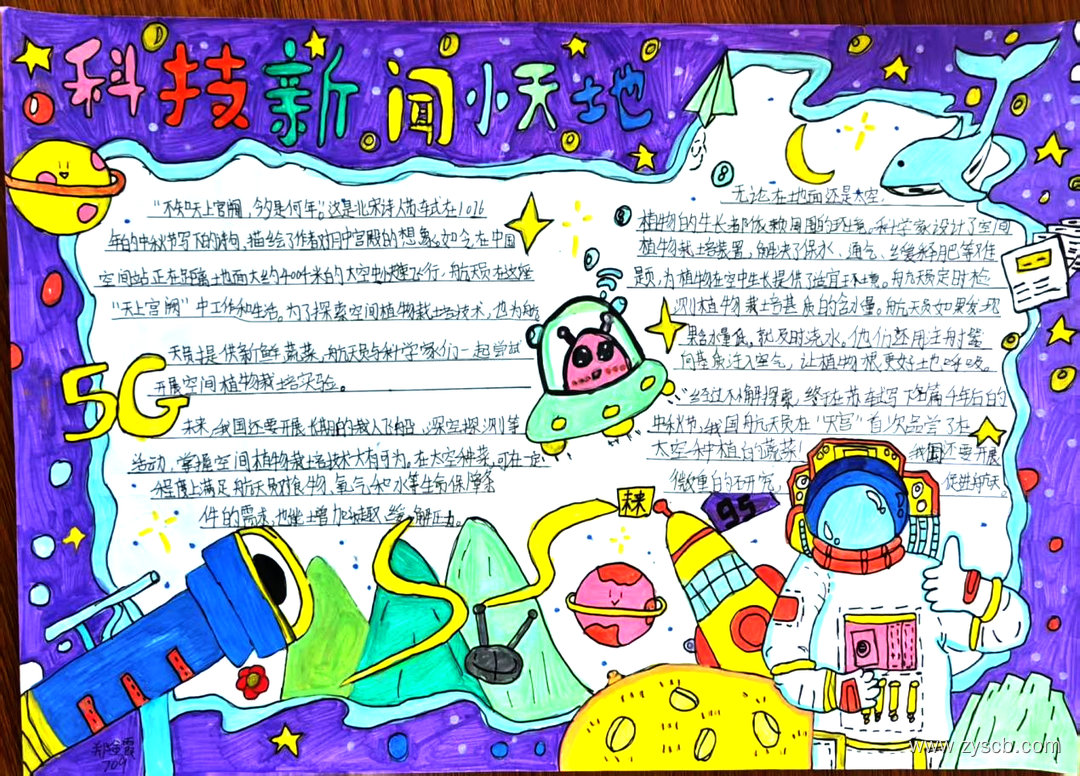 科技新闻小天地
"不知天上宫阙,今夕是何年。"这是北宋诗人苏轼在1076
年的中秋节写下的诗句,描绘了作者对月中宫殿的想象。如今在中国
空间站正在距离地面大约400千米的太空中快速飞行,航天员在这座
"天上宫阙"中工作和生活。为了探索空间植物栽培技术,也为航
天员提供新鲜蔬菜,航天员与科学家们一起尝试
开展空间植物栽培实验。
5G
未来,我国还要开展长期的载人飞船,深空探测等
活动,掌握空间植物栽培技术大有可为。在太空种菜,可在一定
程度上满足航天员对食物、氧气和水等生命保障条
件的需求,也能增加乐趣、缓解压力。
无论在地面还是太空,
植物的生长都依赖周围的环境。科学家设计了空间
植物栽培装置,解决了保水、通气、缓释肥等难
题,为植物在空中生长提供了适宜环境。航天员定时检
测植物栽培基质的含水量。航天员如果发现
含水量低,就及时浇水,他们还用注射器
向基质注入空气,让植物根更好地呼吸。
经过不懈探索,终于在苏轼写下名篇千年后的
中秋节,我国航天员在"天宫"首次品尝了在
太空种植的蔬菜
我国还要开展
微重力的研究,
促进航天。
未来
95
709
www.zyscb.com